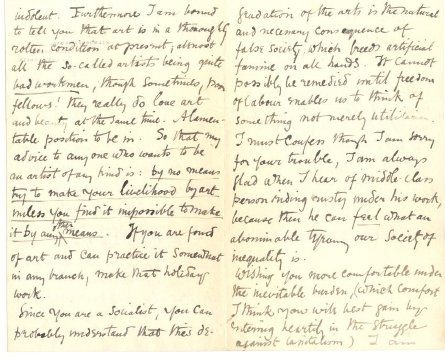 indolent. Furthermore I am bound
to tell you that art is in a thoroughly
rotten condition at present, almost
all the so-called artists being quite
bad workmen, though sometimes, poor
fellows! they really do love art
and beauty at the same time. A lamen-
table position to be in. So that my
advice to any one who wants to be
an artist of any kind is: by no means
try to make your livelihood by art
unless you find it impossible to make
it by any other means. If you are fond
of art and can practice it somewhat
in any branch, make that holiday
work.
Since you are a Socialist, you can
probably understand that this de-
gradation of the arts is the natural
and necessary consequence of
false society, which breeds artificial
famine on all hands. It cannot
possibly be remedied until freedom
of labour enables us to think of
something not merely utilitarian.
I must confess though I am sorry
for your trouble, I am always
glad when I hear of middle-class
person finding rusty under his work,
because then he can feel what an
abominable tyranny our Society of
inequality is.
Wishing you more comfortable under
the inevitable burden, (which comfort
I think you will best gain by
entering heartily in the struggle
against capitalism) I am